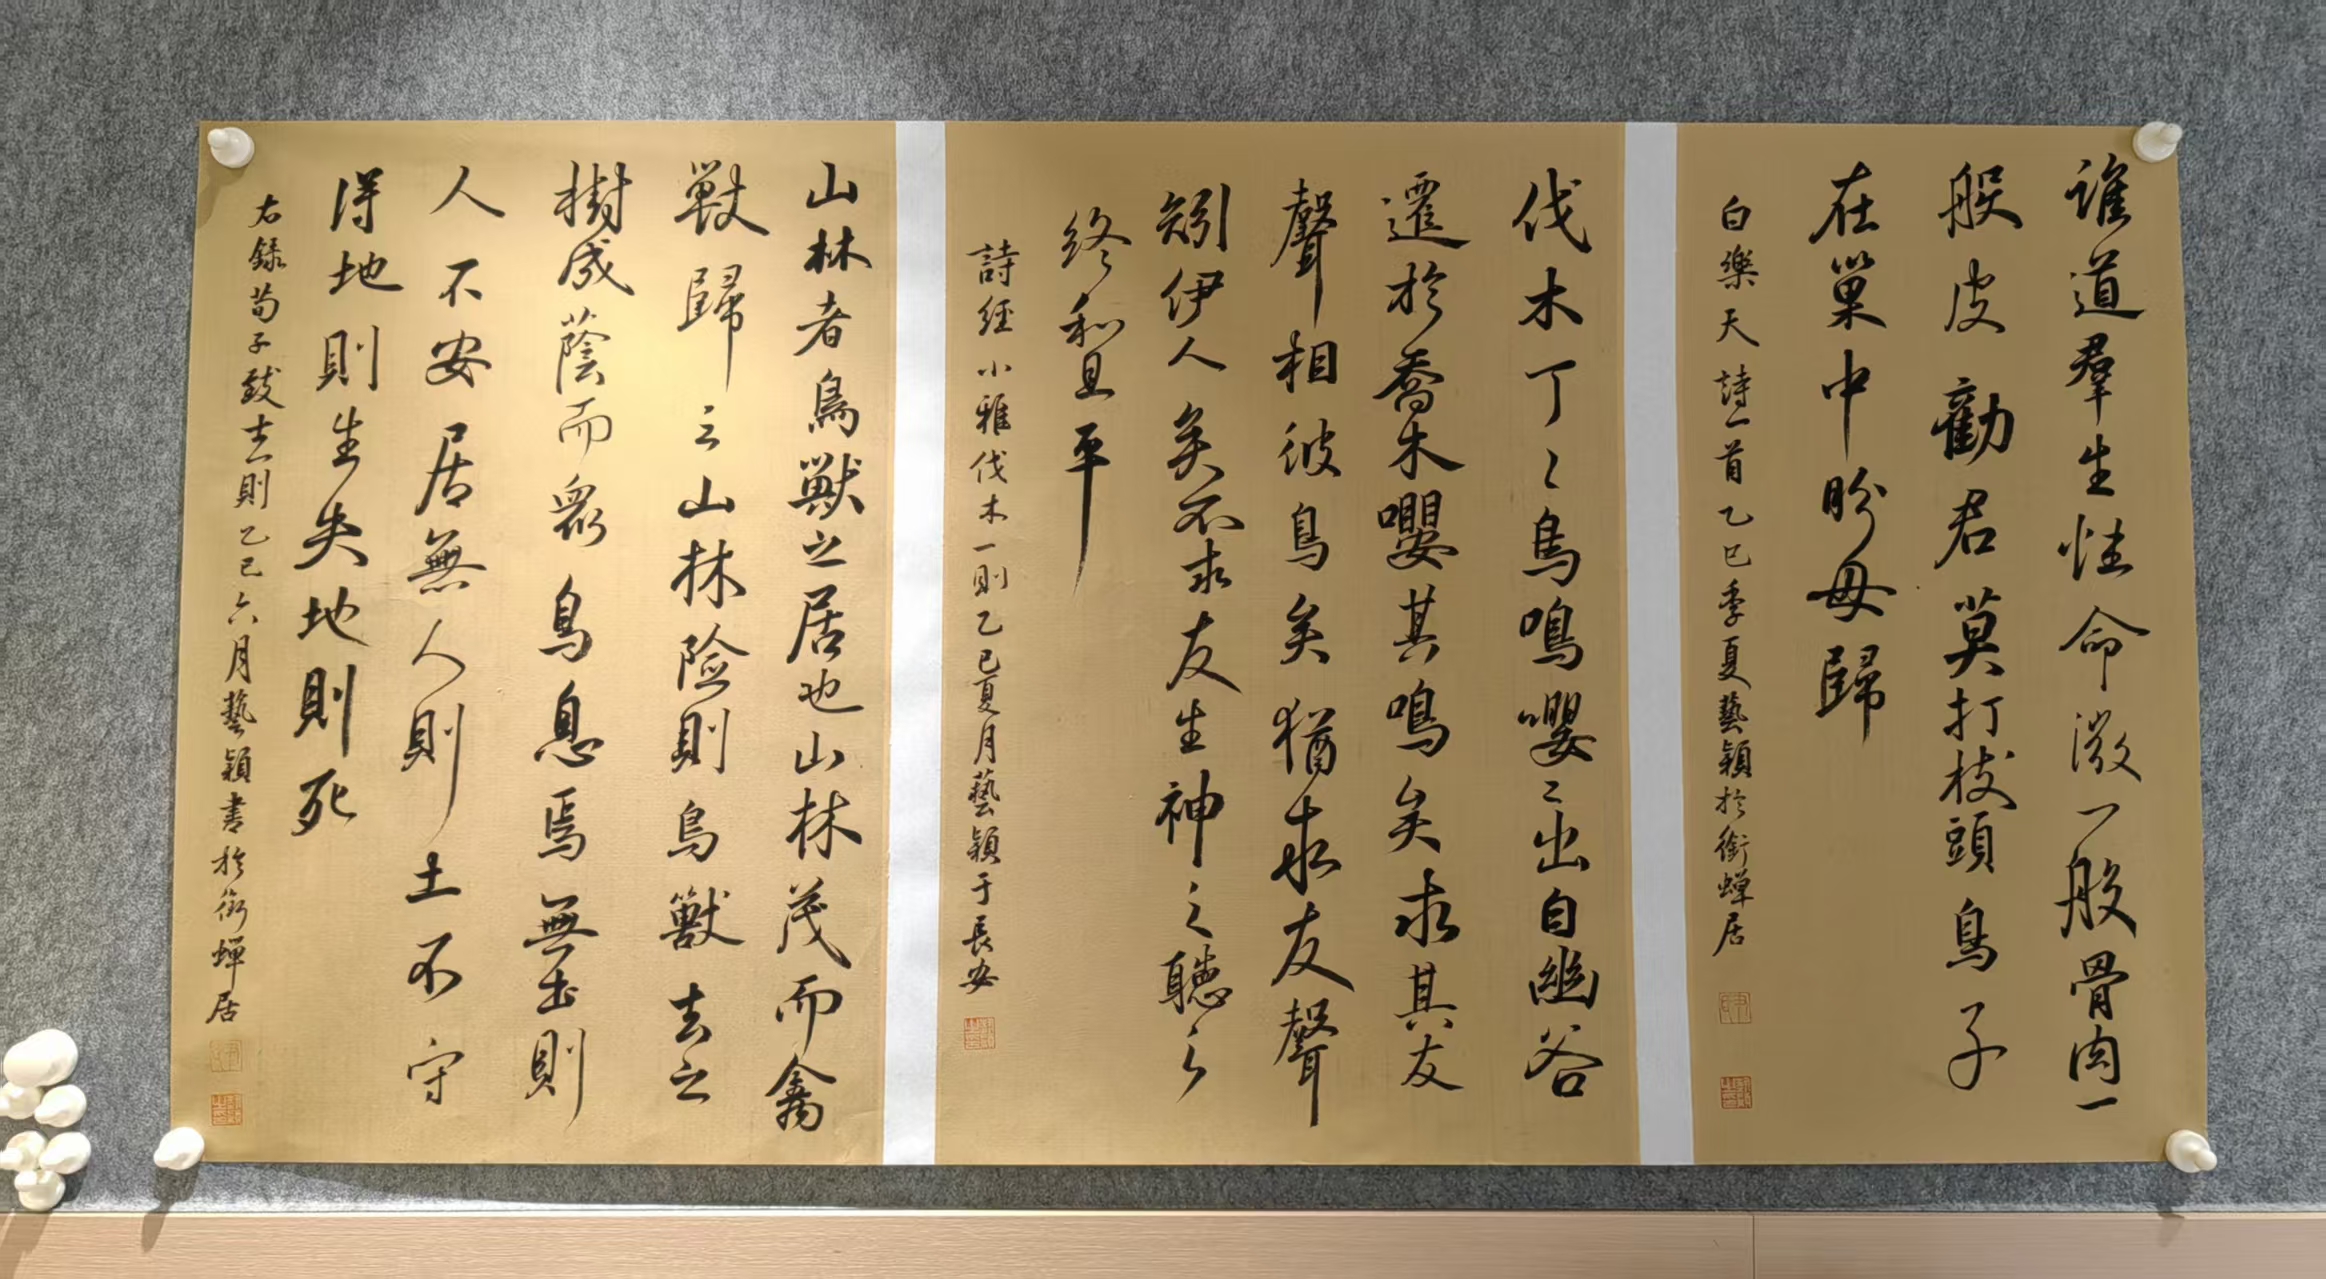 誰道羣生性命微一般骨肉一
般皮勸君莫打枝頭鳥子
在巢中盼母歸
白樂天詩一首乙巳季夏藝穎於銜蟬居
伐木丁丶鳥鳴嚶〻出自幽谷
遷於喬木嚶其鳴矣求其友
聲相彼鳥矣猶求友聲
矧伊人矣不求友生神之聽之
終和且平
詩經小雅伐木一則乙巳夏月藝穎于長安
山林者鳥獸之居也山林茂而禽
獸歸之山林险則鳥獸去之
樹成蔭而眾鳥息焉無土則
人不安居無人則土不守
得地則生失地則死
右録荀子致士則乙巳六月藝穎書於銜蟬居